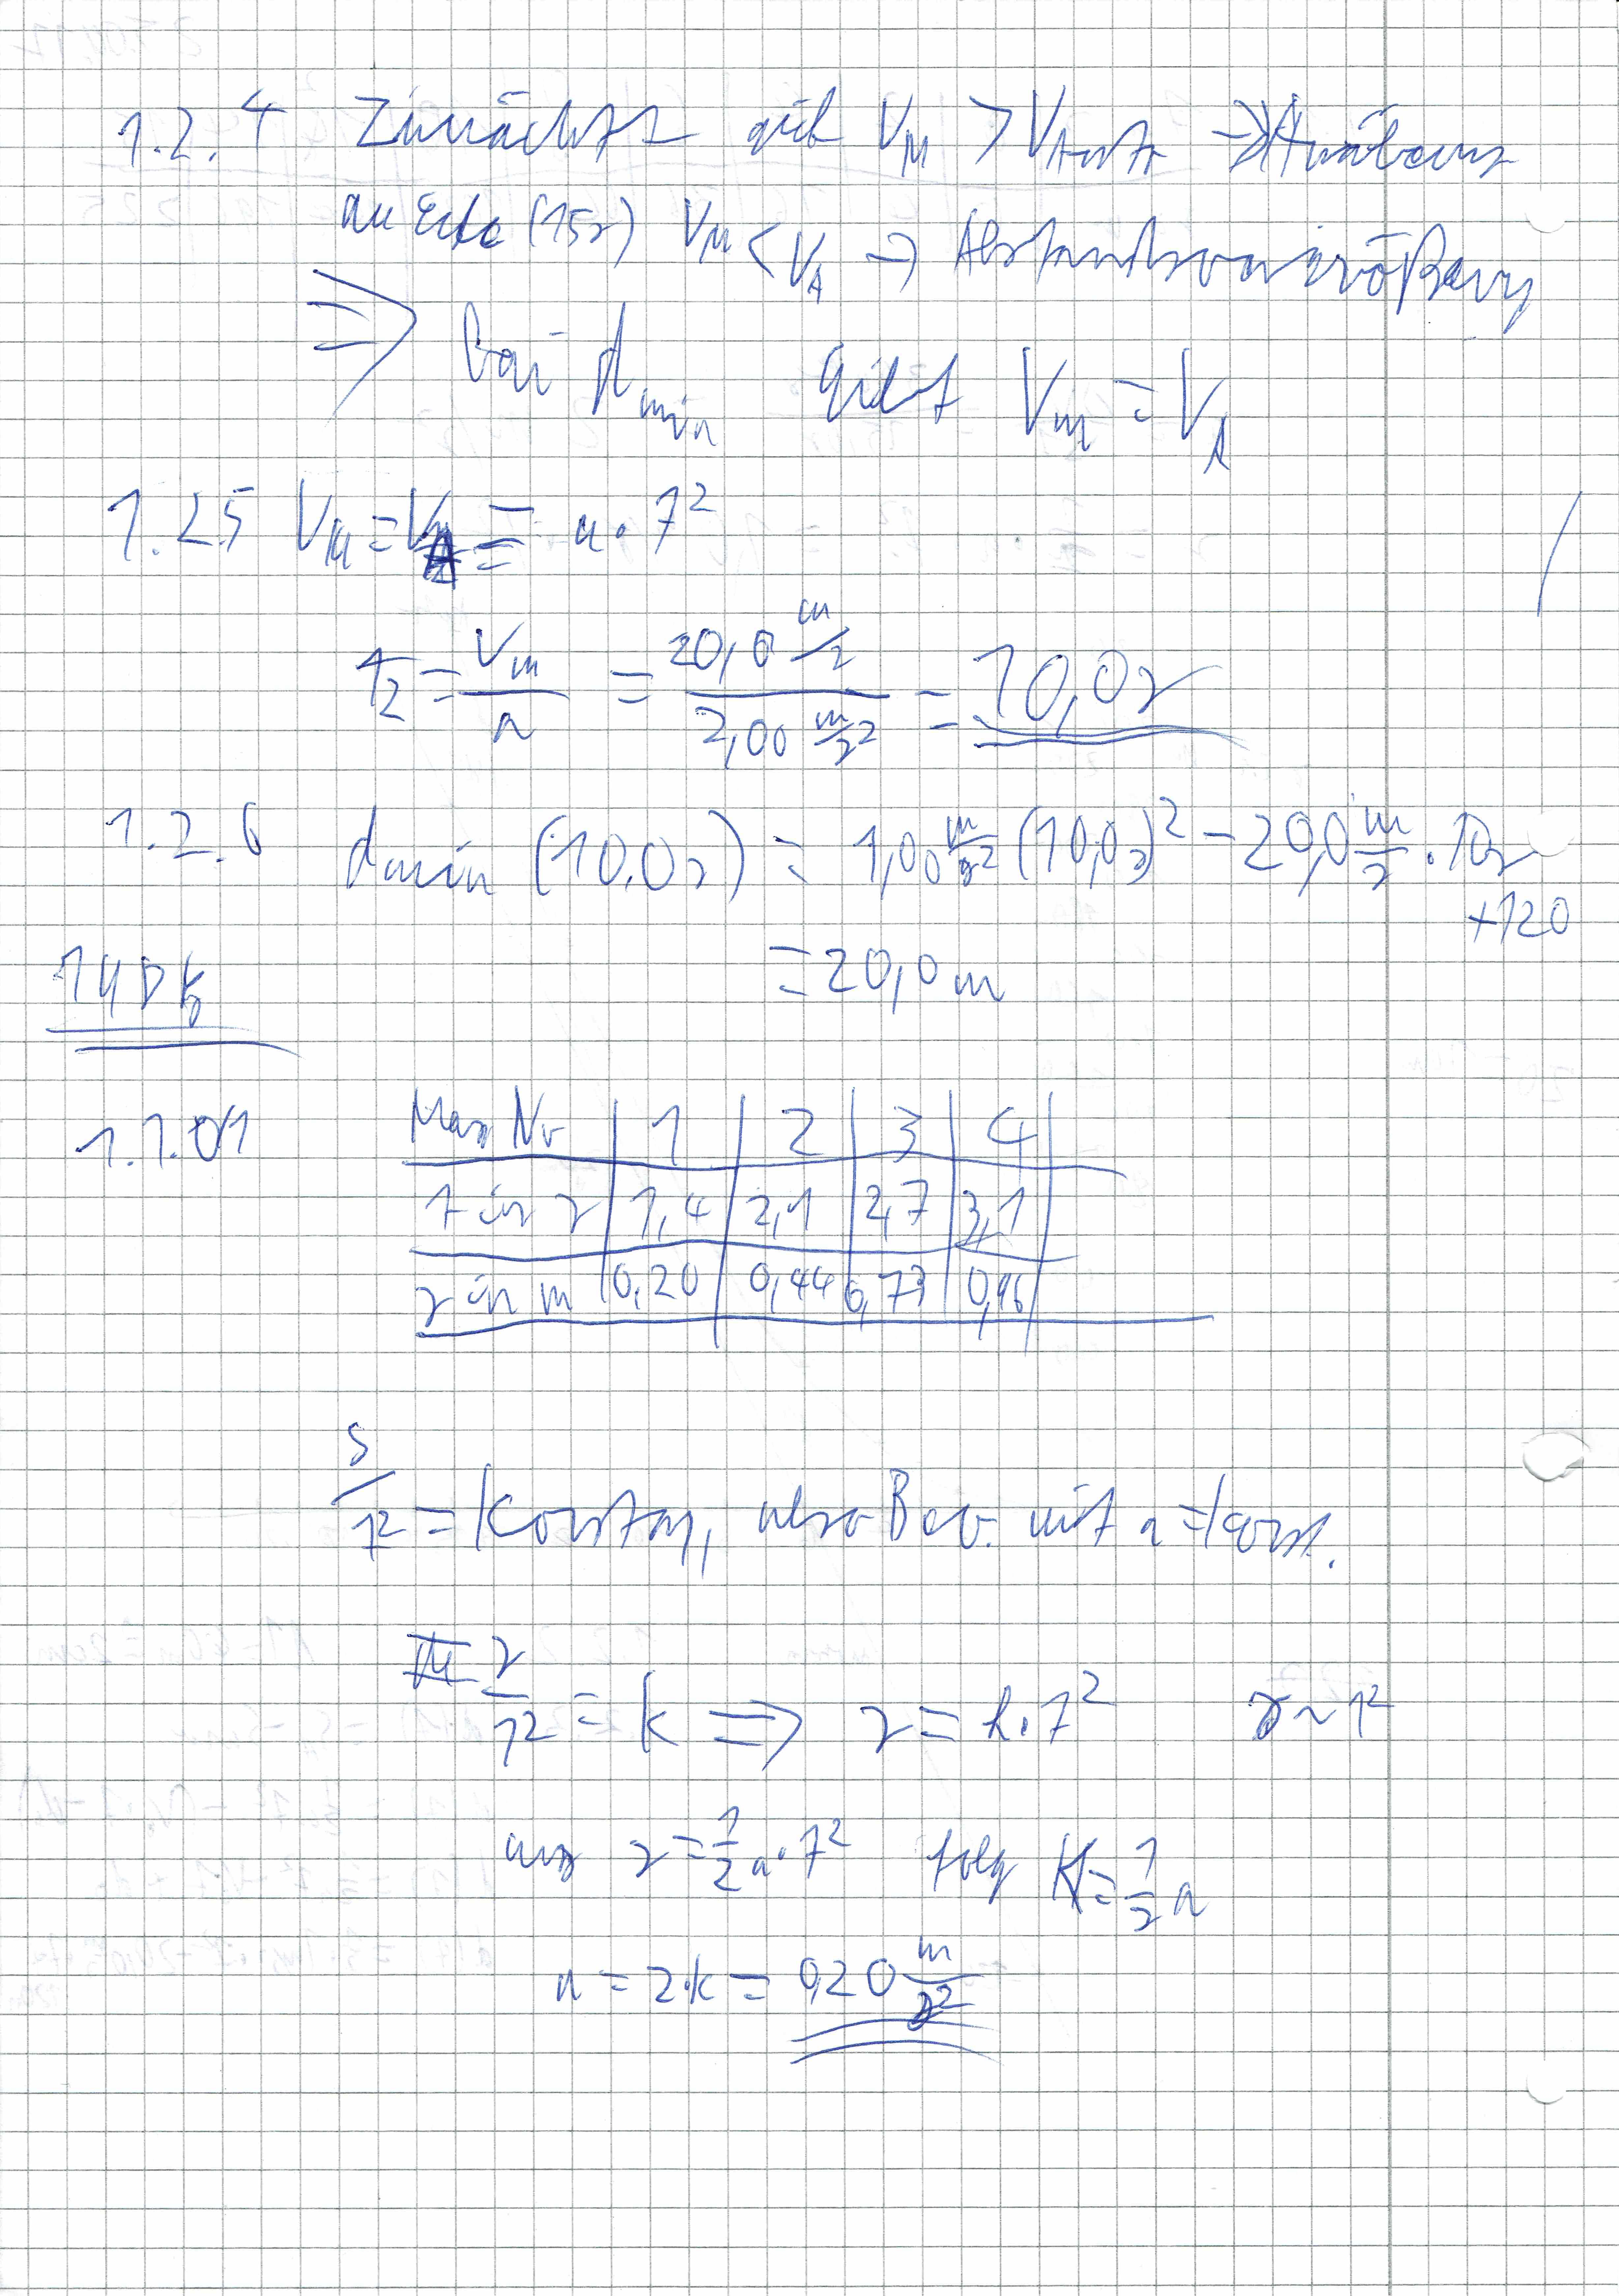 1.2.4 Zunächst gilt V_M > V_Auto → Annäherung
am Ende (15s) V_M < V_A → Abstandsvergrößerung
⇒ bei d_min gilt V_m = V_A
1.2.5 V_M = V_A = a · t²
t_2 = V_m / a = 20,0 m/s / 2,00 m/s² = 10,0s
1.2.6 dmin (10.0s) = 1,00 m/s² (10,0s)² - 20,0 m/s · 10s
+120
= 20,0 m
1.1.01 Mess Nr 1 2 3 4
t in s 1,4 2,1 2,7 3,1
s in m 0,20 0,44 0,73 0,96
s/t² = Konstan, also Bew. mit a = konst.
s/t² = k ⇒ s = k · t² s ~ t²
aus s = 1/2 a · t² folg K = 1/2 a
a = 2·k = 0,20 m/s²